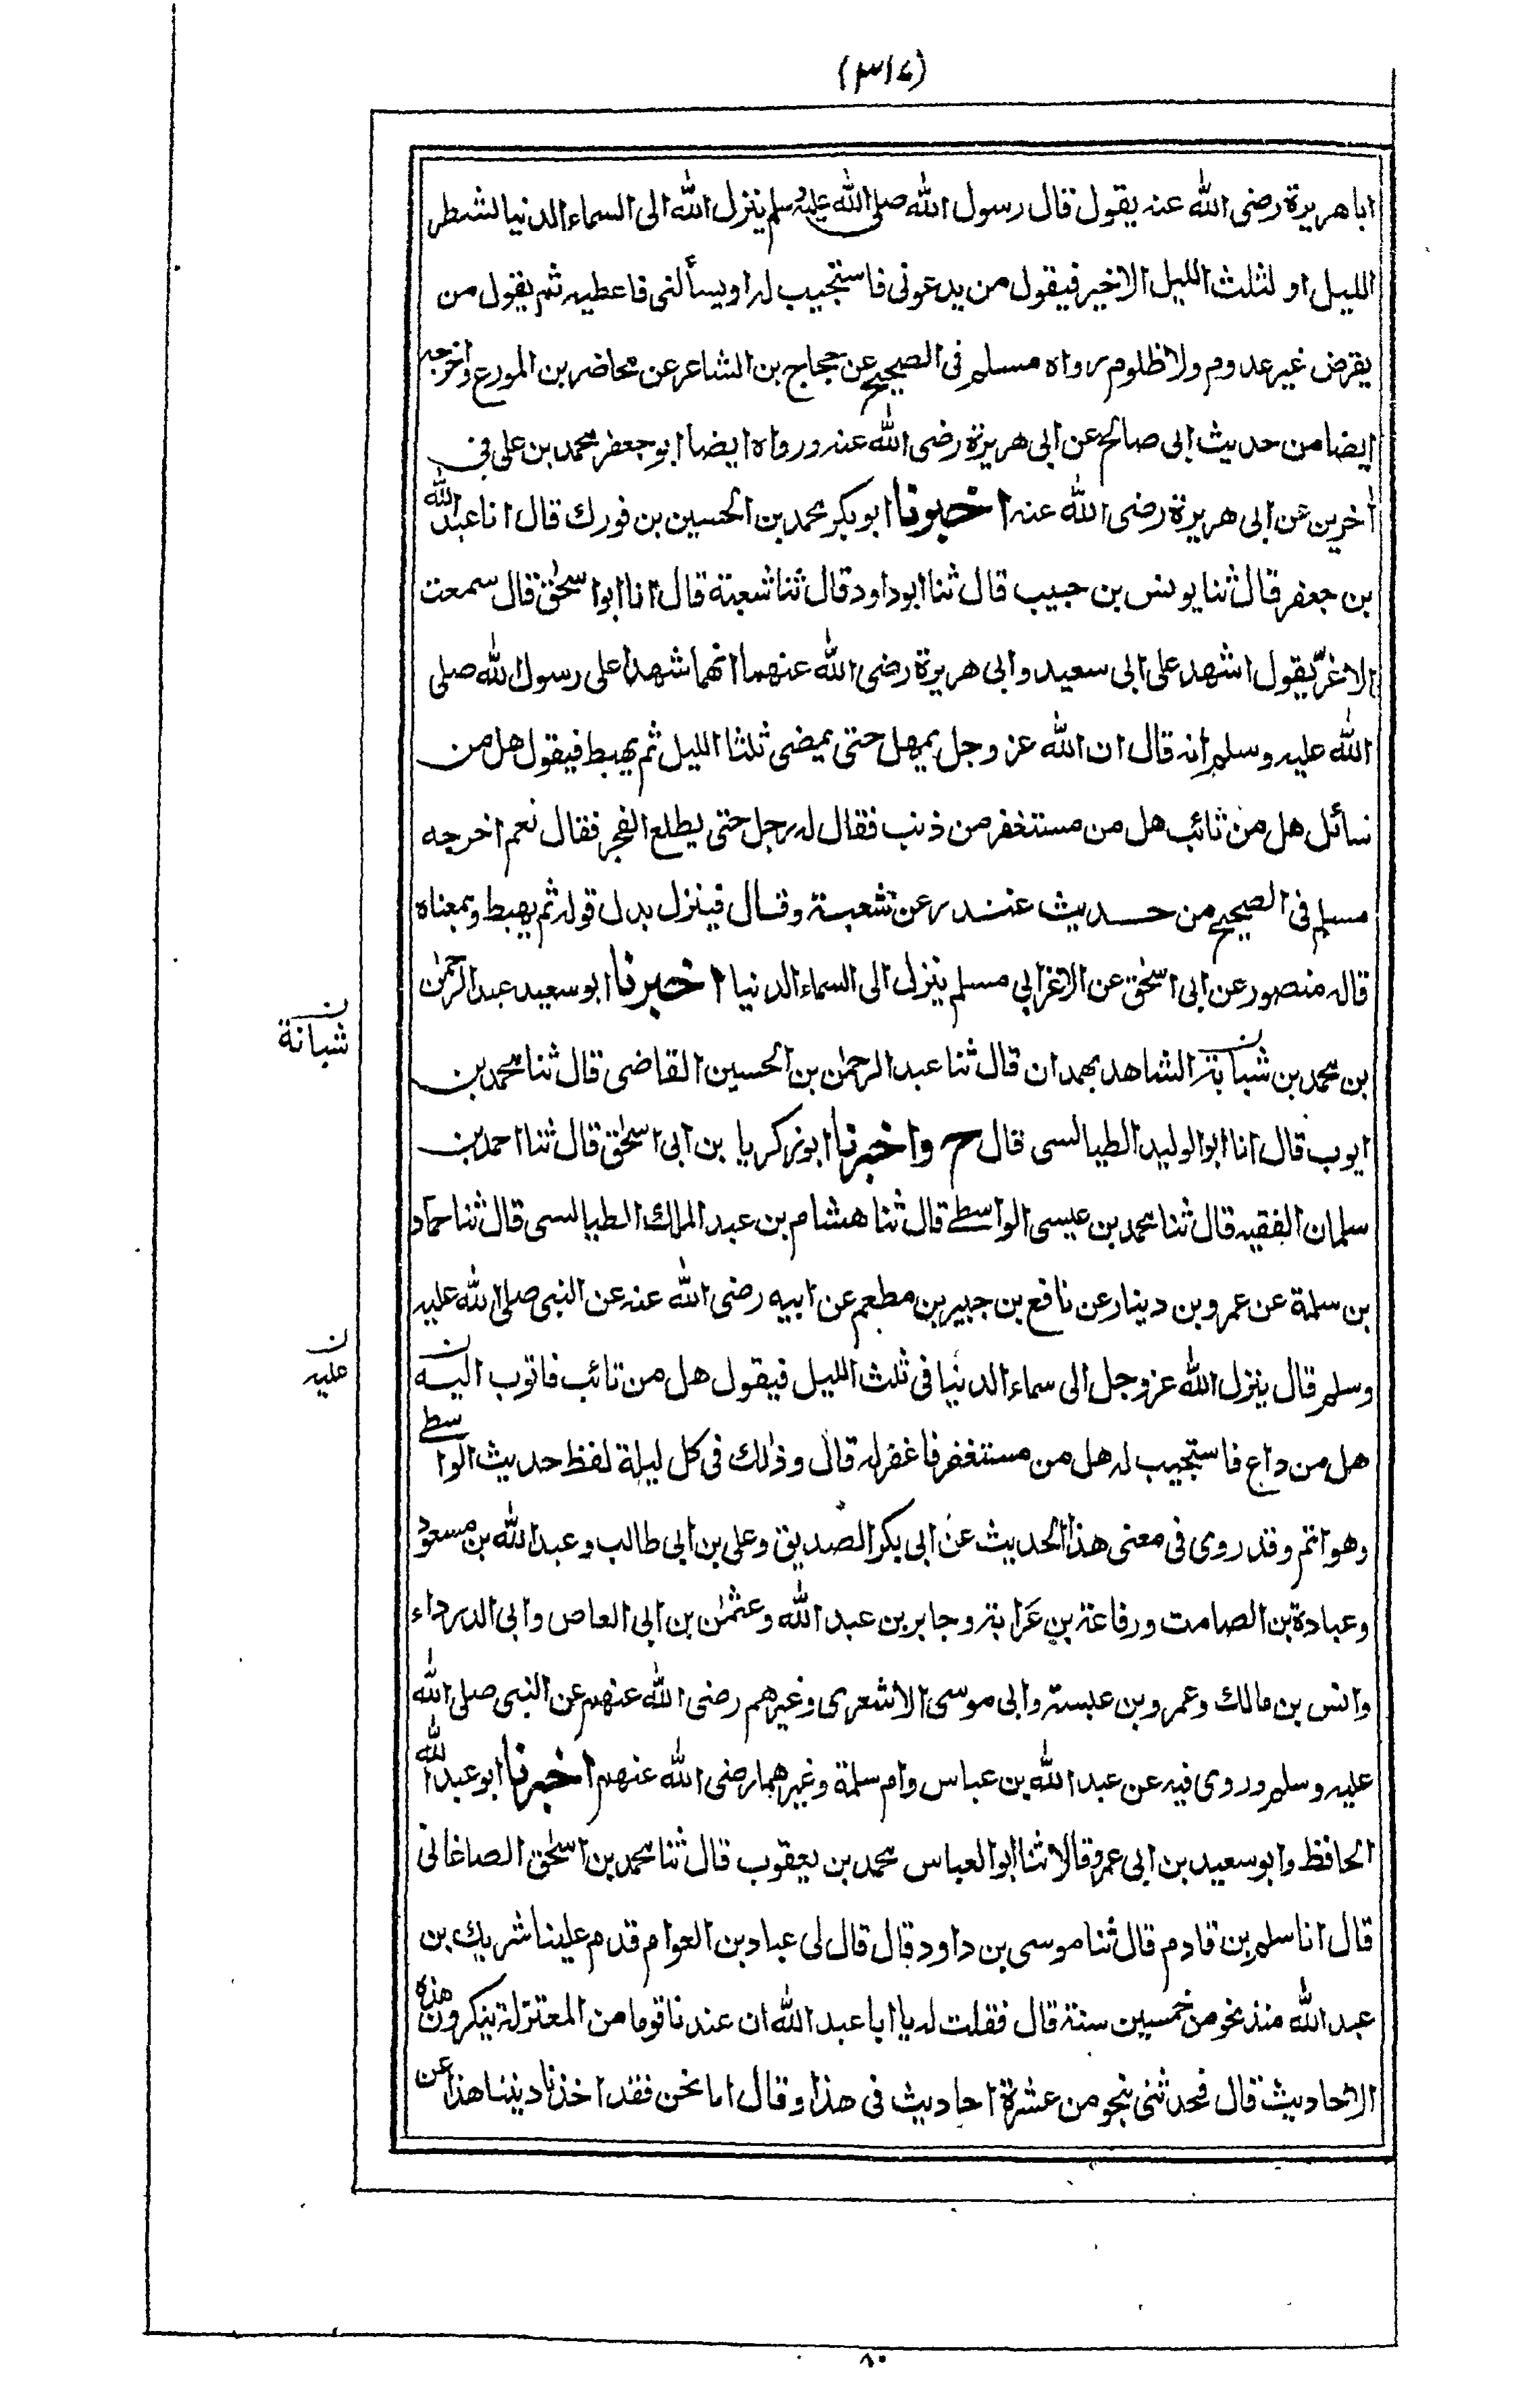 (٣١٧)
ابا هريرة رضى الله عنه يقول قال رسول الله صلى الله عليه وسلم ينزل الله الى السماء الدنيا لشطر
الليل او لثلث الليل الاخير فيقول من يدعونى فاستجيب له او يسألنى فاعطيه ثم يقول من
يقرض غير عدوم ولا ظلوم رواه مسلم فى الصحيح عن حجاج بن الشاعر عن محاضر بن المورع واخرجه
ايضا من حديث ابى صالح عن ابى هريرة رضى الله عنه ورواه ايضا ابو جعفر محمد بن على فى
آخرين عن ابى هريرة رضى الله عنه اخبرنا ابو بكر محمد بن الحسين بن فورك قال انا عبد الله
بن جعفر قال ثنا يونس بن حبيب قال ثنا ابو داود قال ثنا شعبة قال انا ابو اسحٰق قال سمعت
الاغرّ يقول اشهد على ابى سعيد وابى هريرة رضى الله عنهما انهما شهدا على رسول الله صلى
الله عليه وسلم انه قال ان الله عز وجل يمهل حتى يمضى ثلثا الليل ثم يهبط فيقول هل من
سائل هل من تائب هل من مستغفر من ذنب فقال له رجل حتى يطلع الفجر فقال نعم اخرجه
مسلم فى الصحيح من حديث غندر عن شعبة وقال فينزل بدل قوله ثم يهبط وبمعناه
قاله منصور عن ابى اسحٰق عن الاغر ابى مسلم ينزل الى السماء الدنيا اخبرنا ابو سعيد عبد الرحمٰن
ن
شبانة
بن محمد بن شبابة الشاهد بهمدان قال ثنا عبد الرحمٰن بن الحسين القاضى قال ثنا محمد بن
ايوب قال انا ابو الوليد الطيالسى قال ح واخبرنا ابو زكريا بن ابى اسحٰق قال ثنا احمد بن
سلمان الفقيه قال ثنا محمد بن عيسى الواسطے قال ثنا هشام بن عبد الملك الطيالسى قال ثنا حماد
بن سلمة عن عمرو بن دينار عن نافع بن جبير بن مطعم عن ابيه رضى الله عنه عن النبى صلى الله عليه
ن
عليه
وسلم قال ينزل الله عز وجل الى سماء الدنيا فى ثلث الليل فيقول هل من تائب فاتوب اليه
هل من داع فاستجيب له هل من مستغفر فاغفر له قال وذلك فى كل ليلة لفظ حديث الواسطے
وهو اتم وقد روى فى معنى هذا الحديث عن ابى بكر الصديق وعلى بن ابى طالب وعبد الله بن مسعود
وعبادة بن الصامت ورفاعة بن عَرابة وجابر بن عبد الله وعثمٰن بن ابى العاص وابى الدرداء
وانس بن مالك وعمرو بن عبسة وابى موسى الاشعرى وغيرهم رضى الله عنهم عن النبى صلى الله
عليه وسلم وروى فيه عن عبد الله بن عباس وام سلمة وغيرهما رضى الله عنهم اخبرنا ابو عبد الله
الحافظ وابو سعيد بن ابى عمرو قالا ثنا ابو العباس محمد بن يعقوب قال ثنا محمد بن اسحٰق الصاغانى
قال انا سلم بن قادم قال ثنا موسى بن داود قال قال لى عباد بن العوام قدم علينا شريك بن
عبد الله منذ نحو من خمسين سنة قال فقلت له يا ابا عبد الله ان عندنا قوما من المعتزلة ينكرون هذه
الاحاديث قال فحدثنى بنحو من عشرة احاديث فى هذا وقال اما نحن فقد اخذنا ديننا هذا عن
٨٠